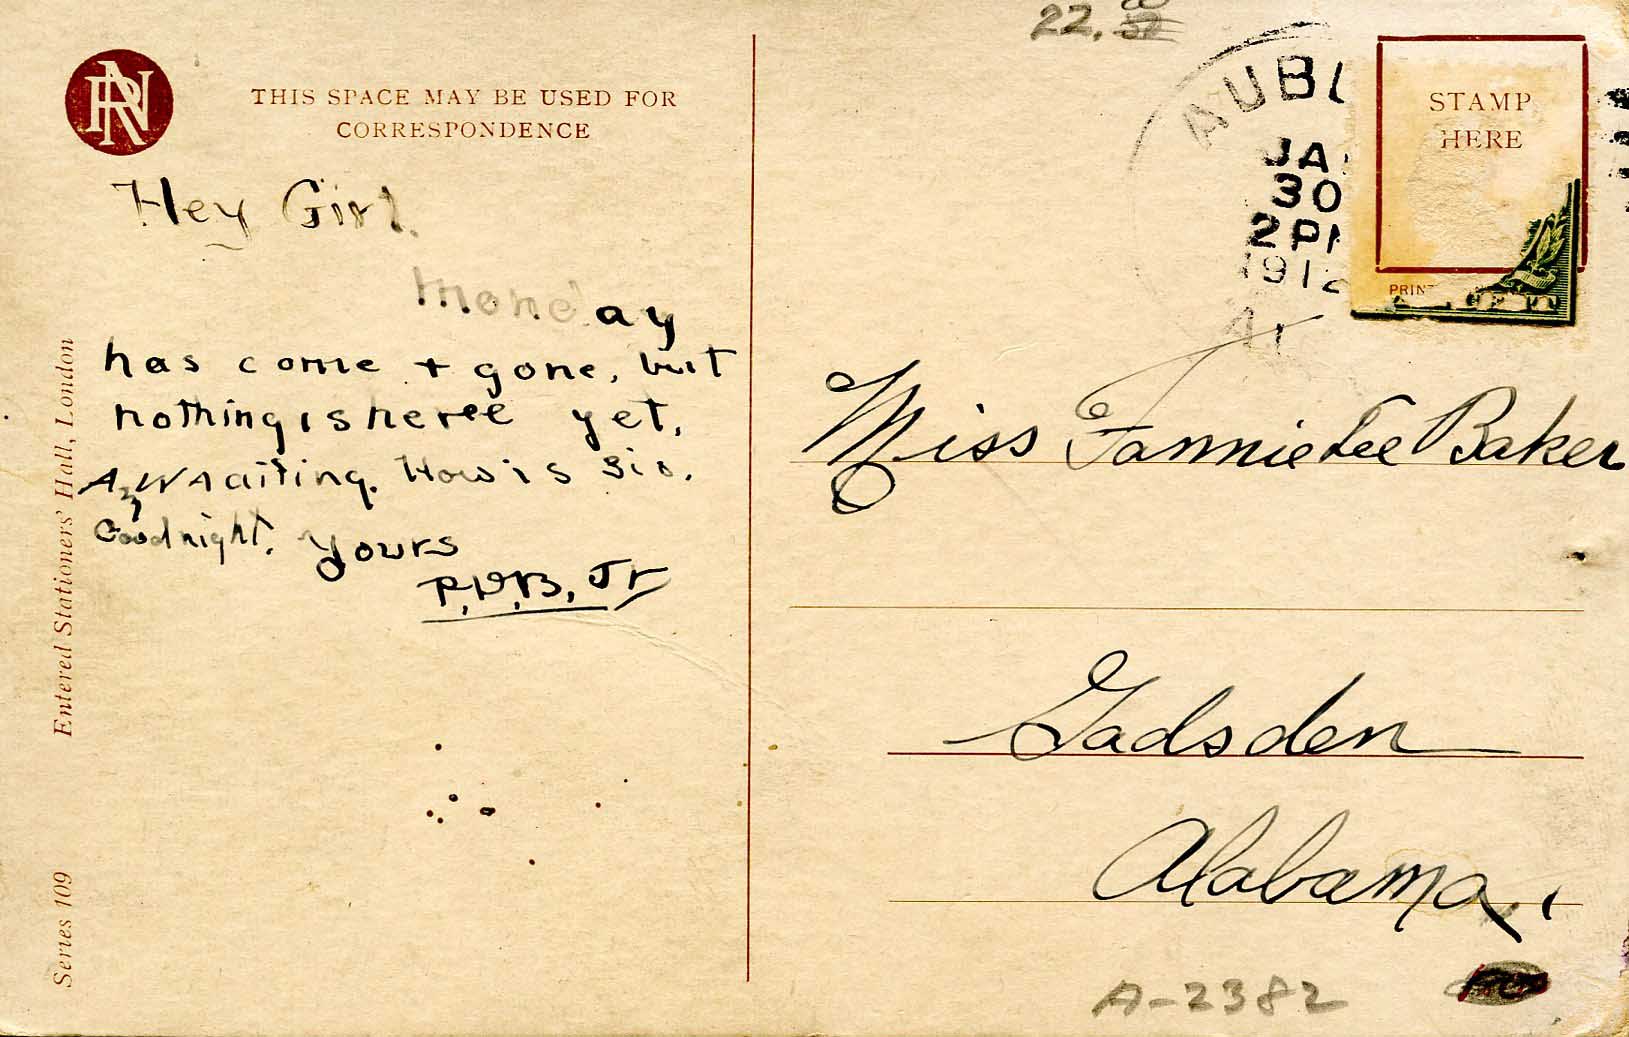 22.
THIS SPACE MAY BE USED FOR
CORRESPONDENCE
Hey Girl.
Monday
has come + gone, but
nothing is heree yet,
Awaiting. How is Sis.
Goodnight. Yours
Jr
Entered Stationers' Hall, London
Series 109
AUBU
JA
30
2 PM
1912
STAMP
HERE
PRIN
Miss Fannie Lee Baker
Gadsden
Alabama,
A-2382